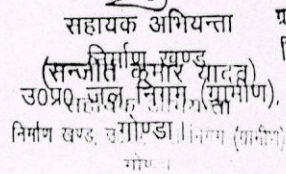 सहायक अभियन्ता
निर्माण खण्ड
(सन्जीत कुमार यादव)
उ०प्र० जल निगम (ग्रामीण),
गोण्डा।
निर्माण खण्ड, निगम (ग्रामीण)